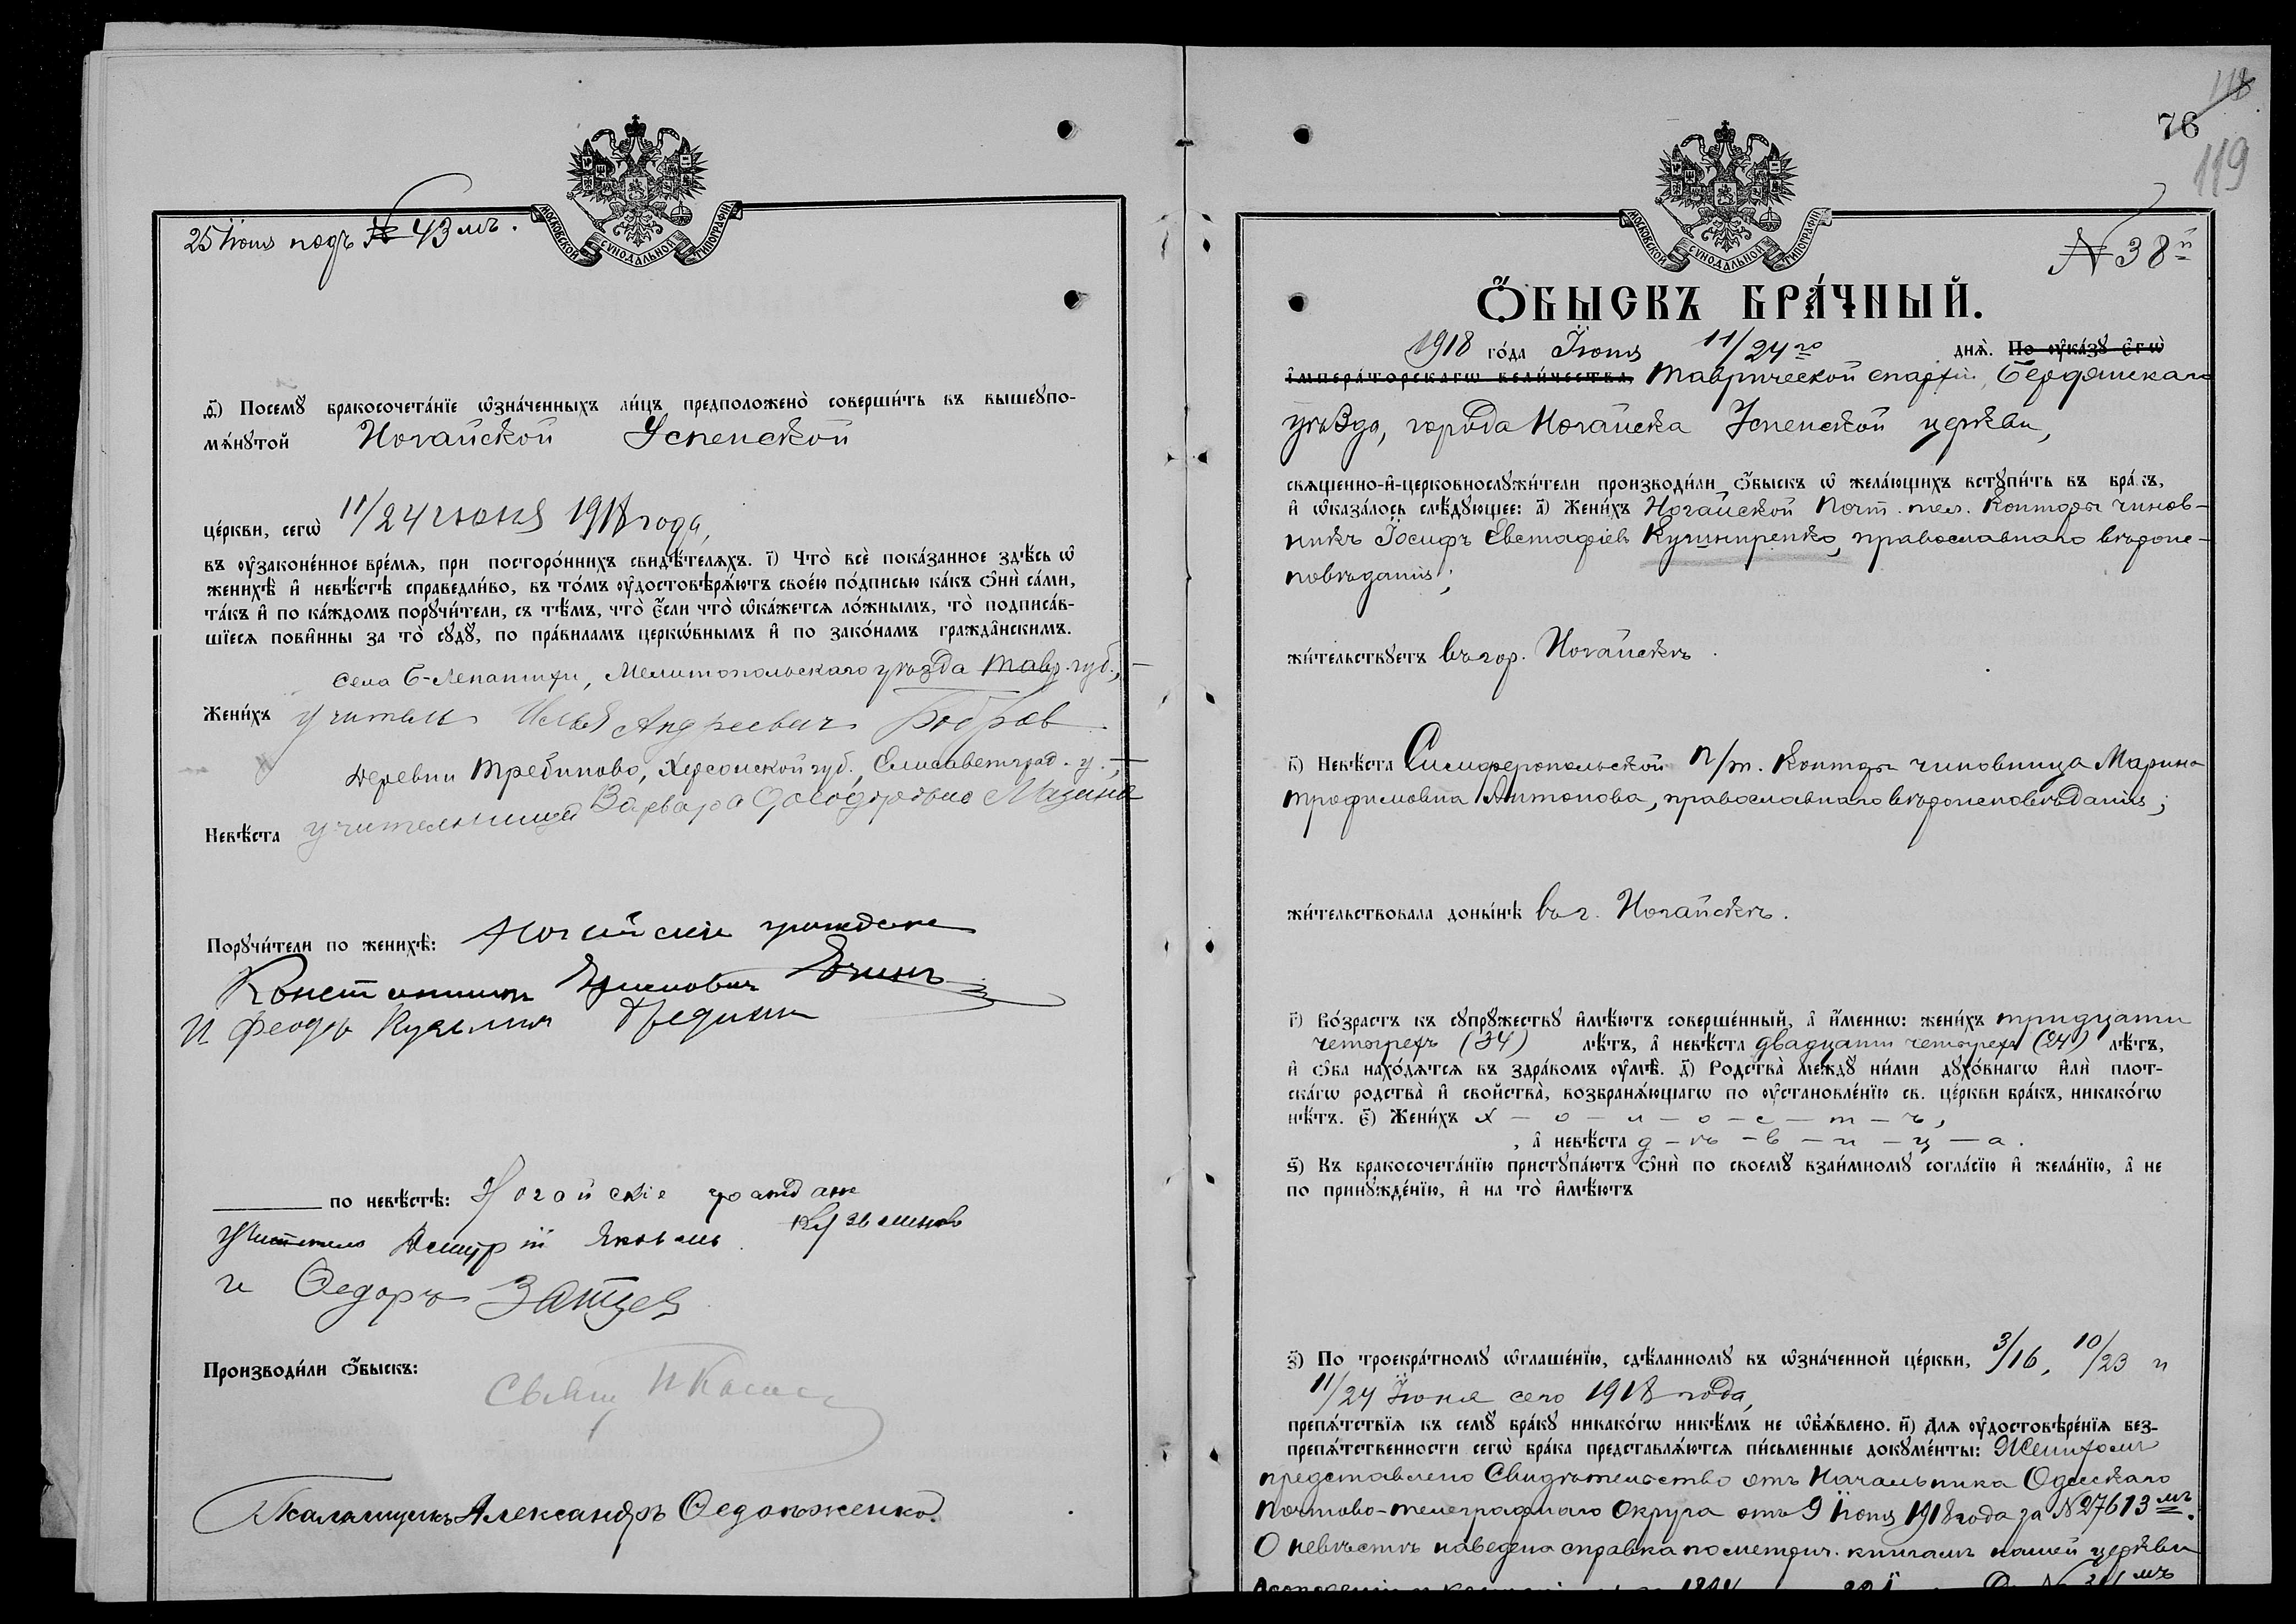 25 Iюня подъ № 43 мъ.
МОСКОВСКОЙ СѴНОДАЛЬНОЙ ТИПОГРАФІИ
ѳ҃) Посемꙋ̀ бракосочета́нїе ѡ҆зна́ченныхъ ли́цъ предположено̀ соверши́ть въ вышеꙋпо-
мѧ́нꙋтой Ногайской Успенской
це́ркви, сегѡ̀ 11/24 июня 1918 года,
въ ᲂу҆законе́нное вре́мѧ, при посторо́ннихъ свидѣ́телѧхъ. і҃) Что̀ всѐ пока́занное здѣ́сь ѡ҆
женихѣ̀ и҆ невѣ́стѣ справедли́во, въ то́мъ ᲂу҆достовѣрѧ́ютъ свое́ю по́дписью ка́къ ѻ҆нѝ са́ми,
та́къ и҆ по ка́ждомъ порꙋчи́тели, съ тѣ́мъ, что̀ є҆́сли что̀ ѡ҆ка́жетсѧ ло́жнымъ, то̀ подписа́в-
шїесѧ пови́нны за то̀ сꙋдꙋ̀, по пра́виламъ церко́внымъ и҆ по зако́намъ гражда̂нскимъ.
Села Б-Лепатихи, Мелитопольскаго уѣзда Тавр. губ.,
Жени́хъ учитель Илья Андреевич Бобров
Деревни Требиново, Херсонской губ., Елисаветград. у.,
Невѣ́ста учительница Варвара Мазина
Порꙋчи́тели по женихѣ̀: Ногайскіе граждане
Константинъ
и Феодоръ Кузьминъ
по невѣ́стѣ: Ногайскіе граждане
Учитель Димитрій Яковлев Кузьминовъ
и Ѳедоръ Зайцев
Производи́ли ѻ҆́быскъ:
Свящ.
Псаломщикъ Александръ Ѳедоряженко.
118
76
119
МОСКОВСКОЙ СѴНОДАЛЬНОЙ ТИПОГРАФІИ
№ 38й
Ѻ҆́БЫСКЪ БРА́ЧНЫЙ.
1918 го́да Iюня 11/24го днѧ̀. По ᲂу҆ка́зꙋ є҆гѡ̀
и҆мпера́торскагѡ вели́чества, Таврической епархіи, Бердянскаго
уѣзда, города Ногайска Успенской церкви,
свѧщенно-и҆-церковнослꙋжи́тели производи́ли ѻ҆́быскъ ѡ҆ жела́ющихъ встꙋпи́ть въ бра́къ,
и҆ ѡ҆каза́лось слѣ́дꙋющее: а҃) Жени́хъ Ногайской Почт. тел. Конторы чинов-
никъ Іосифъ Евстафіевъ Кушниренко, православнаго вѣроис-
повѣданія;
жи́тельствꙋетъ въ гор. Ногайскѣ.
в҃) Невѣ́ста Симферопольской п/т. Конторы чиновница Марина
Трофимовна Антонова, православнаго вѣроисповѣданія;
жи́тельствовала доны́нѣ въ г. Ногайскѣ.
г҃) Во́зрастъ къ сꙋпрꙋ́жествꙋ и҆мѣ́ютъ соверше́нный, а҆ и҆́меннѡ: жени́хъ тридцати
четырехъ (34) лѣ́тъ, а҆ невѣ́ста двадцати четырехъ (24) лѣ́тъ,
и҆ ѻ҆́ба нахо́дѧтсѧ въ здра́вомъ ᲂу҆мѣ̀. д҃) Родства̀ междꙋ̀ ни́ми дꙋхо́внагѡ и҆лѝ плот-
ска́гѡ родства̀ и҆ свойства̀, возбранѧ́ющагѡ по ᲂу҆становле́нїю св. це́ркви бра́къ, никако́гѡ
нѣ́тъ. є҃) Жени́хъ х – о – л – о – с – т – ъ,
, а҆ невѣ́ста д – ѣ – в – и – ц – а.
ѕ҃) Къ бракосочета́нїю пристꙋпа́ютъ ѻ҆нѝ по своемꙋ̀ взаи́мномꙋ согла́сїю и҆ жела́нїю, а҆ не
по принꙋжде́нїю, и҆ на то̀ и҆мѣ́ютъ
з҃) По троекра́тномꙋ ѡ҆глаше́нїю, сдѣ́ланномꙋ въ ѡ҆зна́ченной це́ркви, 3/16, 10/23 и
11/24 Iюня сего 1918 года,
препѧ́тствїѧ къ семꙋ̀ бра́кꙋ никако́гѡ никѣ́мъ не ѡ҆б̾ѧ́влено. и҃) Для ᲂу҆достовѣре́нїѧ без-
препѧ́тственности сегѡ̀ бра́ка представлѧ́ютсѧ пи́сьменные докꙋме́нты: Женихомъ
представлено Свидѣтельство отъ Начальника Одесскаго
Почтово-телеграфнаго Округа отъ 9 Iюня 1918 года за № 27613 мъ.
О невѣстѣ наведена справка по метрич. книгамъ нашей церкви